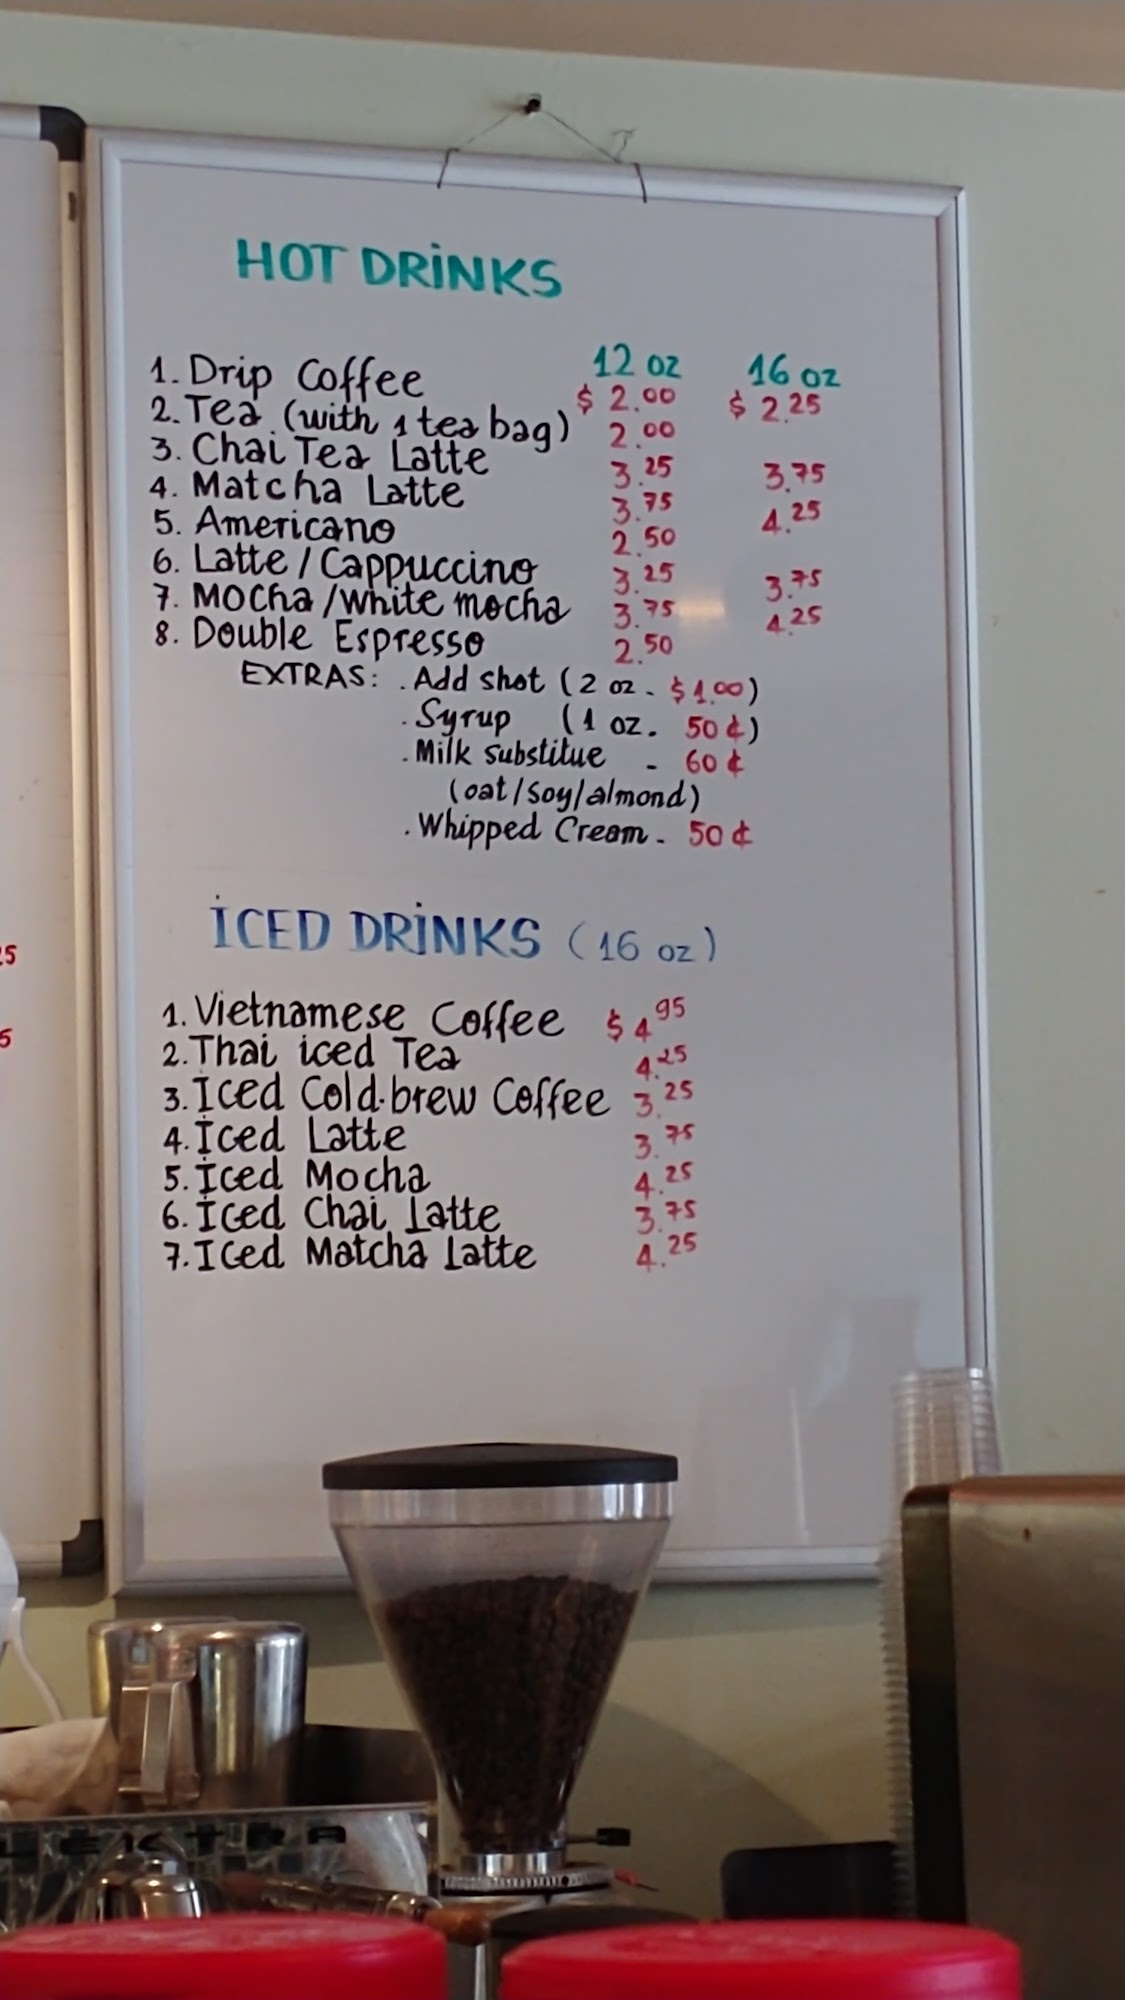 HOT DRINKS
12 oz 16 oz
1. Drip Coffee $ 2.00 $ 2.25
2. Tea (with 1 tea bag) 2.00
3. Chai Tea Latte 3.25 3.75
4. Matcha Latte 3.75 4.25
5. Americano 2.50
6. Latte / Cappuccino 3.25 3.75
7. Mocha / white mocha 3.75 4.25
8. Double Espresso 2.50
EXTRAS: . Add shot (2 oz - $1.00)
. Syrup (1 oz. 50 ¢)
. Milk Substitue - 60 ¢
(oat/soy/almond)
. Whipped Cream - 50 ¢
ICED DRINKS (16 oz)
1. Vietnamese Coffee $ 4.95
2. Thai iced Tea 4.25
3. Iced Cold-brew Coffee 3.25
4. Iced Latte 3.75
5. Iced Mocha 4.25
6. Iced Chai Latte 3.75
7. Iced Matcha Latte 4.25